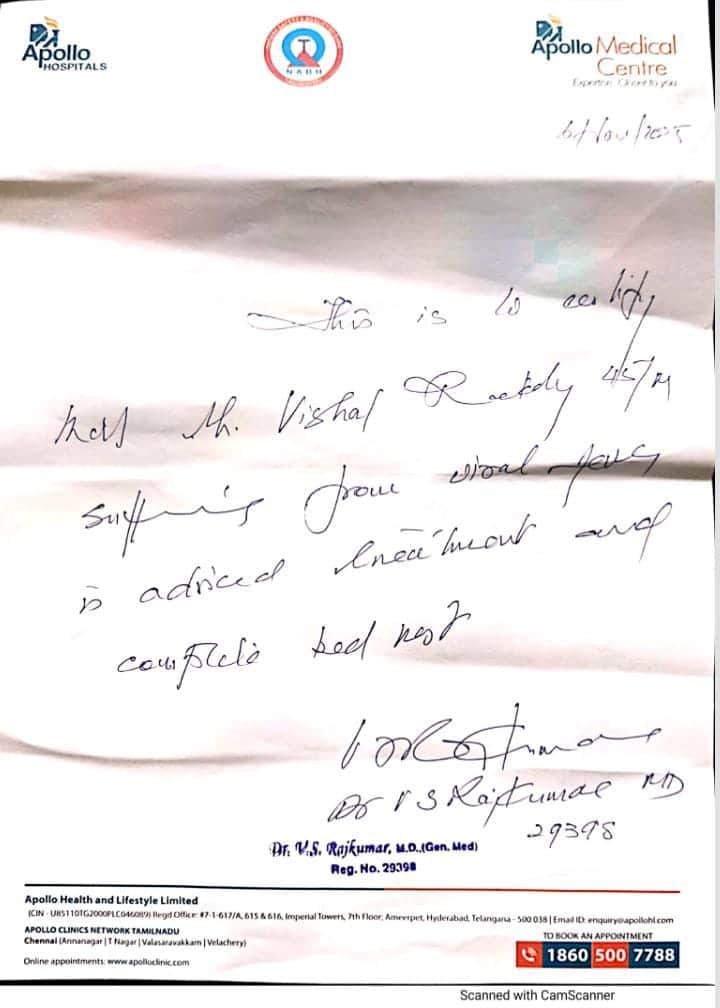 Apollo
HOSPITALS
NABH
Apollo Medical
Centre
Expertise. Closer to you
6/Nov/2025
This is to certify
that Mr. Vishal Reddy 45/M
suffering from viral fever
is adviced treatment and
complete bed rest
Dr V S Rajkumar MD
29398
Dr. V.S. Rajkumar, M.D.,(Gen. Med)
Reg. No. 29398
Apollo Health and Lifestyle Limited
(CIN - U85110TG2000PLC046089) Regd Office: #7-1-617/A, 615 & 616, Imperial Towers, 7th Floor, Ameerpet, Hyderabad, Telangana - 500 038 | Email ID: enquiry@apollohl.com
APOLLO CLINICS NETWORK TAMILNADU
Chennai (Annanagar | T Nagar | Valasaravakkam | Velachery)
TO BOOK AN APPOINTMENT
Online appointments: www.apolloclinic.com
1860 500 7788
Scanned with CamScanner